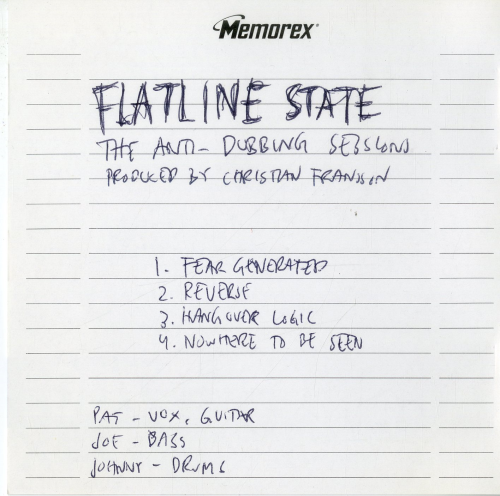 Memorex
FLATLINE STATE
THE ANTI-DUBBING SESSIONS
PRODUCED BY CHRISTIAN FRANSSON
1. FEAR GENERATED
2. REVERSE
3. HANGOVER LOGIC
4. NOWHERE TO BE SEEN
PAT - VOX, GUITAR
JOE - BASS
JOHNNY - DRUMS